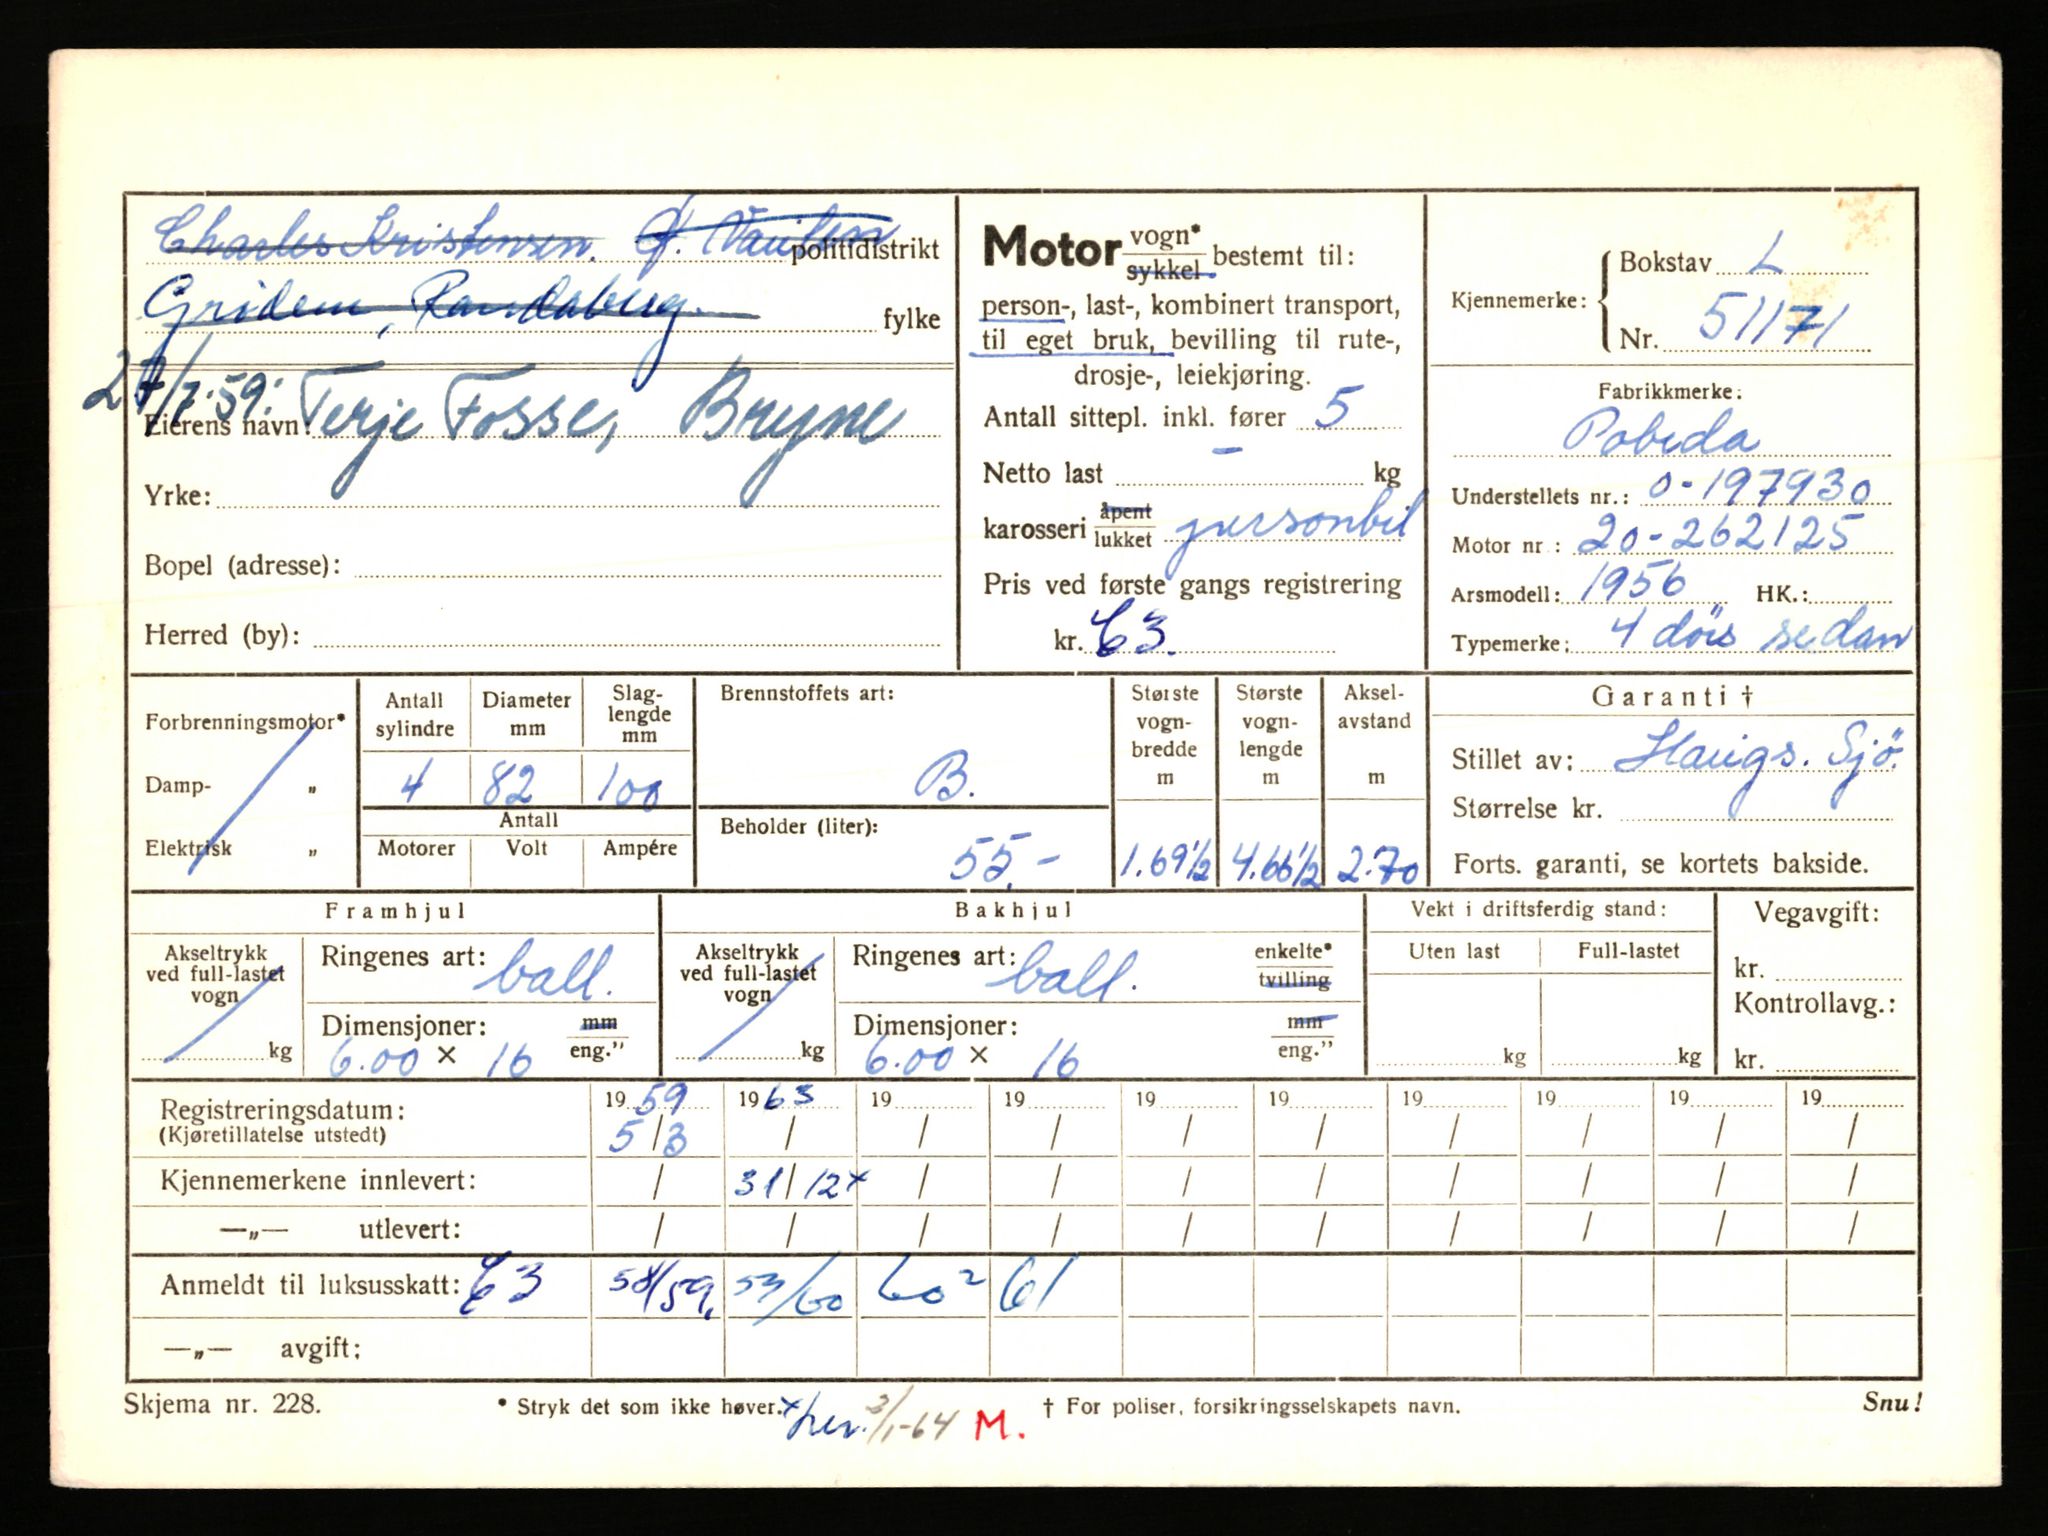 Charles Kristensen.
politidistrikt
Gridem, Randaberg.
fylke
27/7.59. Terje Fosse, Bryne
Eierens navn:
Yrke:
Bopel (adresse):
Herred (by):
Motor vogn* sykkel bestemt til:
person-, last-, kombinert transport,
til eget bruk, bevilling til rute-,
drosje-, leiekjøring.
Antall sittepl. inkl. fører 5
Netto last - kg
karosseri åpent lukket personbil
Pris ved første gangs registrering
kr. C3.
Kjennemerke: Bokstav L
Nr. 51171
Fabrikkmerke:
Pobeda
Understellets nr.: 0-197930
Motor nr: 20-262125
Arsmodell: 1956 HK.:
Typemerke: 4 dörs sedan
Forbrenningsmotor*
Damp- „
Elektrisk „
Antall sylindre Diameter mm Slag-lengde mm
4 82 100
Antall
Motorer Volt Ampére
Brennstoffets art:
B.
Beholder (liter):
55.-
Største vogn-bredde m Største vogn-lengde m Aksel-avstand m
1.69½ 4.66½ 2.70
Garanti †
Stillet av: Haugs. Sjö.
Størrelse kr.
Forts. garanti, se kortets bakside.
Framhjul
Akseltrykk ved full-lastet vogn
kg
Ringenes art: ball.
Dimensjoner: mm
6.00 × 16 eng.”
Bakhjul
Akseltrykk ved full-lastet vogn
kg
Ringenes art: ball. enkelte* tvilling
Dimensjoner: mm
6.00 × 16 eng.”
Vekt i driftsferdig stand:
Uten last Full-lastet
kg kg
Vegavgift:
kr.
Kontrollavg.:
kr.
Registreringsdatum: 1959 1963 19 19 19 19 19 19 19 19
(Kjøretillatelse utstedt) 5/3 / / / / / / / / /
Kjennemerkene innlevert: / 31/12x / / / / / / / /
—„— utlevert: / / / / / / / / / /
Anmeldt til luksusskatt: C3 58/59. 59/60 60² 61
—„— avgift:
Skjema nr. 228.
* Stryk det som ikke høver.
x her. 3/1-64 M.
† For poliser, forsikringsselskapets navn.
Snu!